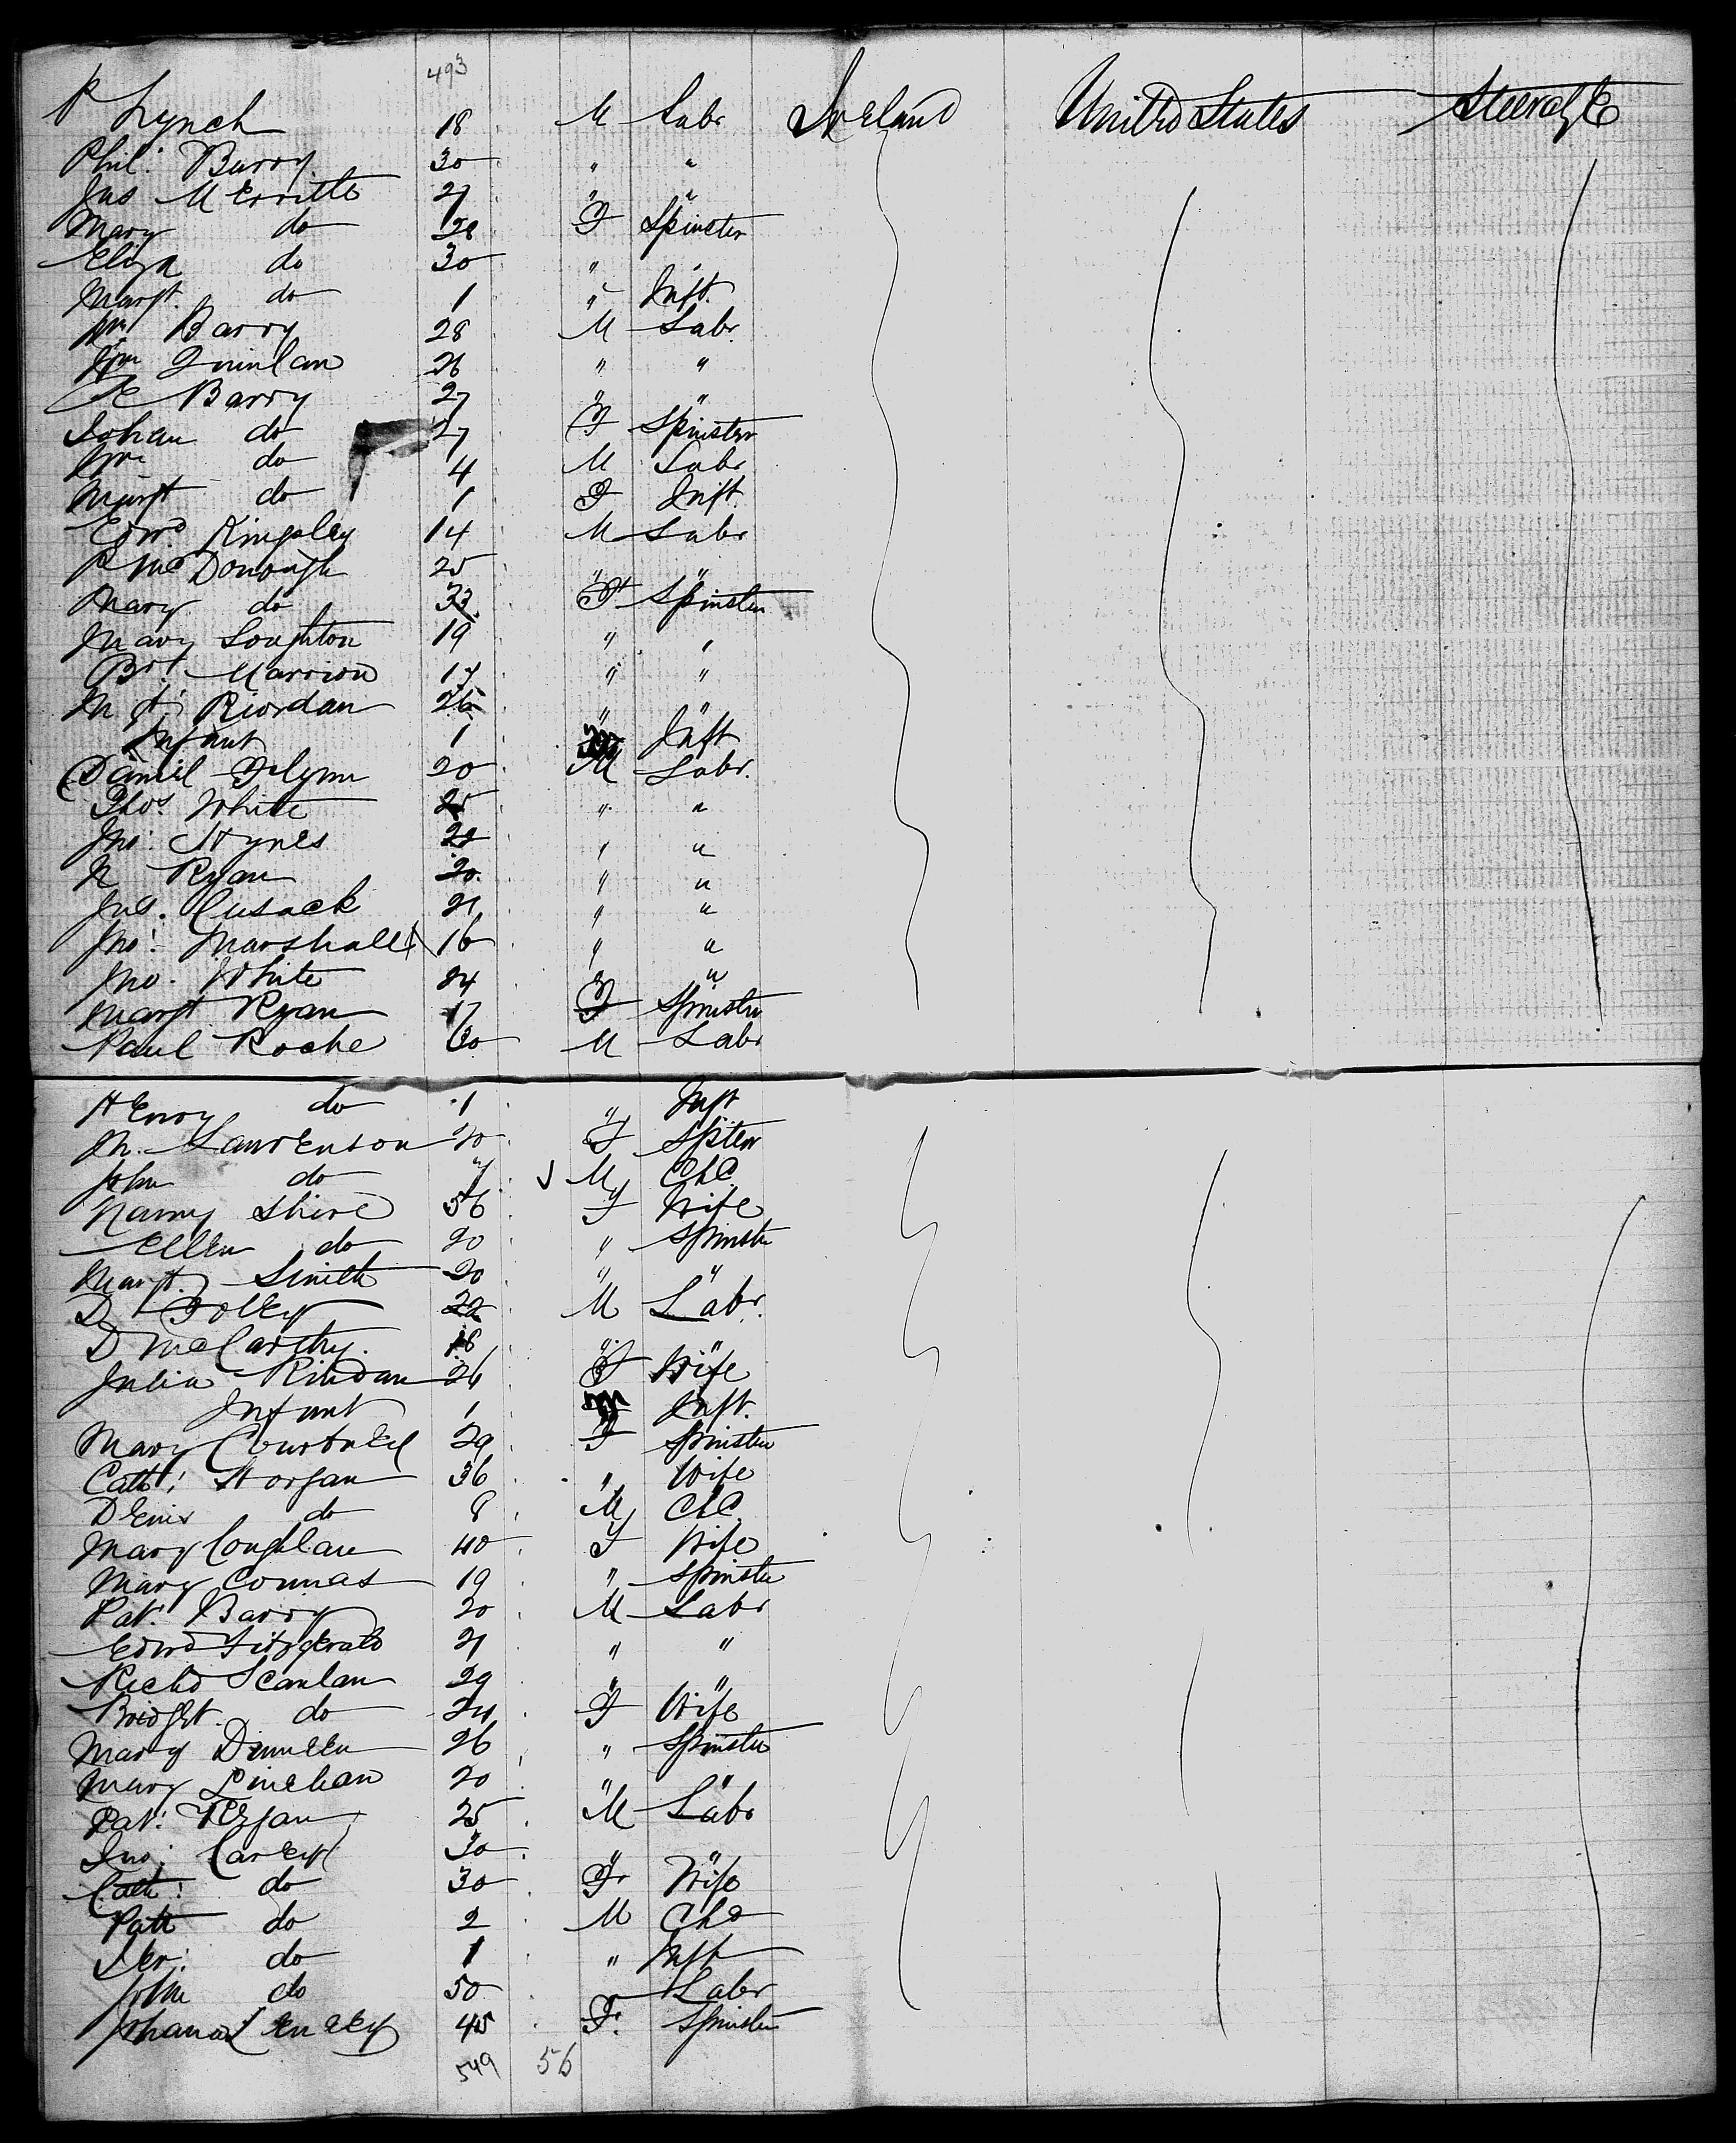 493
P Lynch 18 M Labr Ireland United States Steerage
Phil. Barry 30 " "
Jas Merritt 27 " "
Mary do 28 F Spinster
Eliza do 30 " "
Margt. do 1 " Inft.
Wm Barry 28 M Labr.
Wm Quinlan 26 " "
Barry 27 " "
Johan do 27 F Spinster
Wm do 4 M Labr
Margt do 1 F Inft.
Edwd. Kingsley 14 M Labr
P McDonough 25 " "
Mary do 33 F Spinster
Mary Loughton 19 " "
Brt. Marrion 17 " "
Mgt. Riordan 26 " "
Infant 1 Inft
Daniel Flynn 20 M Labr.
Thos. White 25 " "
Jno. Hynes 22 " "
N Ryan 20 " "
Jas. Cusack 21 " "
Jno. Marshall 16 " "
Jno. White 24 "
Margt Ryan 17 F Spinster
Paul Roche 30 M Labr
Henry do 1 " Inft
M. Lawrenson 20 F Spster
John do M Chd
Nanny Shire 56 F Wife
Ellen do 20 " Spinster
Margt. Smith 20 " "
D Folley 22 M Labr.
D McCarthy. 18 " "
Julia Rirdan 26 F Wife
Infant 1 Inft.
Mary Courtney 29 F Spinster
Cath: Horgan 36 " Wife
Denis do 8 M Chd.
Mary Coughlan 40 F Wife
Mary Connas 19 " Spinster
Pat. Barry 20 M Labr
Edwd Fitzgerald 21 " "
Richd Scanlan 29 " "
Bridget do 24 F Wife
Mary Dinneen 26 " Spinster
Mary Linehan 20 " "
Pat: Regan 25 M Labr
Jno: Carey 30 " "
Cath: do 30 F Wife
Patt do 2 M Chd
Jer: do 1 " Inft
John do 50 Labr
Johana 45 F. Spinster
549 56